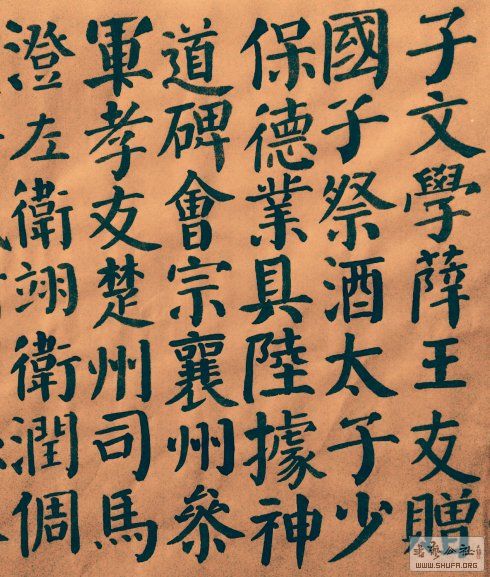 子文學薛王友贈
國子祭酒太子少
保德業具陸據神
道碑會宗襄州叅
軍孝友楚州司馬
澄左衛翊衛潤倜
书艺公社
WWW.SHUFA.ORG